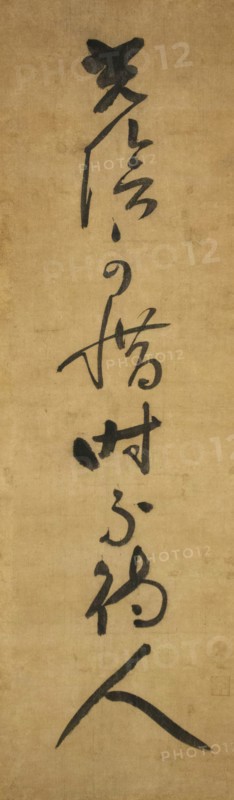 光陰可惜時不待人
PHOTO12
PHOTO12
PHOTO12
PHOTO12
PHOTO12
PHOTO12
PHOTO12
PHOTO12